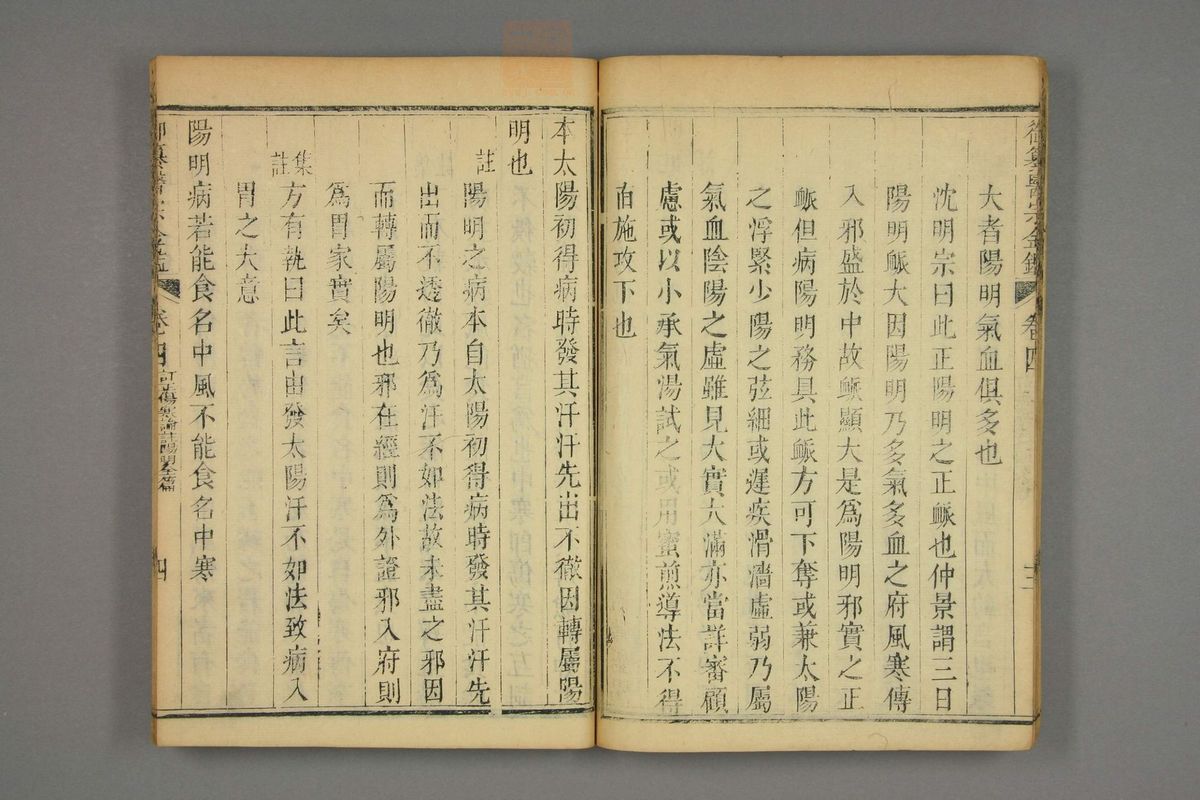 御纂醫宗金鑑 卷四 三
大者陽明氣血俱多也
沈明宗曰此正陽明之正脈也仲景謂三日
陽明脈大因陽明乃多氣多血之府風寒傳
入邪盛於中故脈顯大是爲陽明邪實之正
脈但病陽明務具此脈方可下奪或兼太陽
之浮緊少陽之弦細或遲疾滑濇虛弱乃屬
氣血陰陽之虛雖見大實大滿亦當詳審顧
慮或以小承氣湯試之或用蜜煎導法不得
直施攻下也
本太陽初得病時發其汗汗先出不徹因轉屬陽
明也
註 陽明之病本自太陽初得病時發其汗汗先
出而不透徹乃爲汗不如法故未盡之邪因
而轉屬陽明也邪在經則爲外證邪入府則
爲胃家實矣
集註 方有執曰此言由發太陽汗不如法致病入
胃之大意
陽明病若能食名中風不能食名中寒
御纂醫宗金鑑 卷四 訂正傷寒論註陽明全篇 四